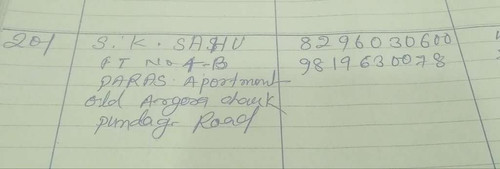 201 S.K. SAHU 8296030600
FT No 4-B 9819630078
PARAS. Aportment
old Argora chauk
pundag Road